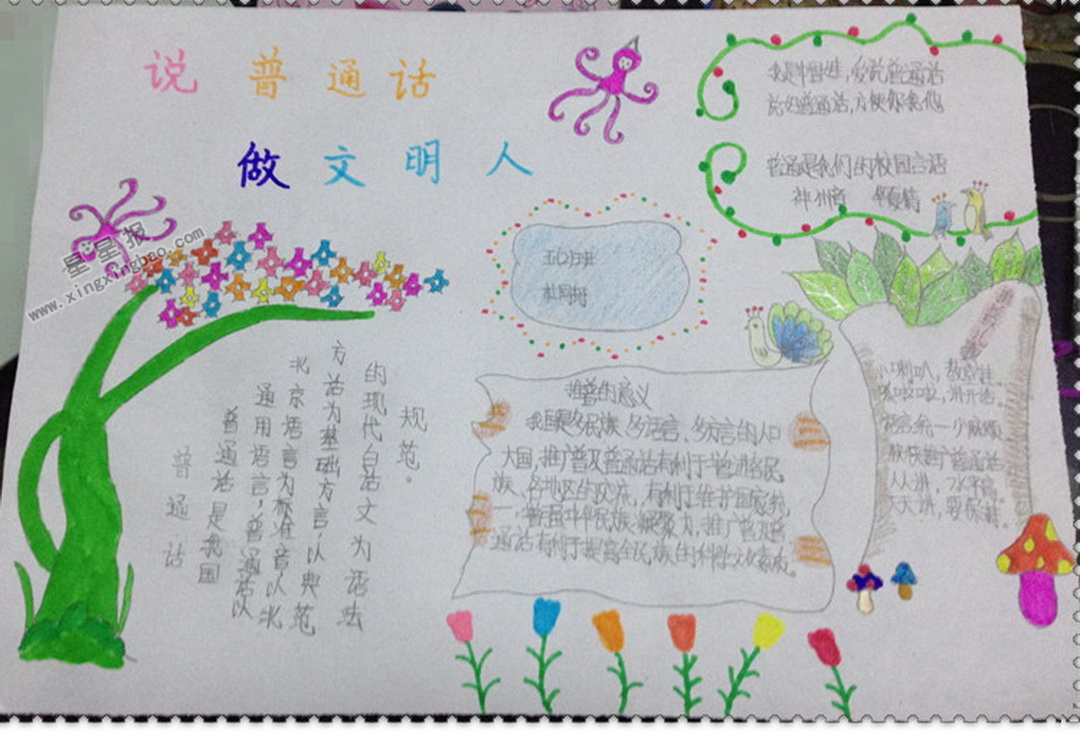 说普通话
做文明人
我是中国娃，爱说普通话
说好普通话，方便你我他
普通是我们的校园言语
神州音 华夏情
星星报
www.xingxingbao.com
五(2)班
推普的意义
我国是多民族、多语言、多方言的人口
大国，推广普及普通话有利于增进各民
族、各地区的交流，有利于维护国家统
一，增强中华民族凝聚力，推广普及普
通话有利于提高全民族的科学文化素质。
小喇叭，教室挂。
嘀哒哒，讲开话。
语言统一少麻烦
人人讲，水平高
天天讲，要保持。
普通话
普通话是我国
通用语言，普通话以
北京语言为标准音以北
方话为基础方言，以典范
的现代白话文为语法
规范。